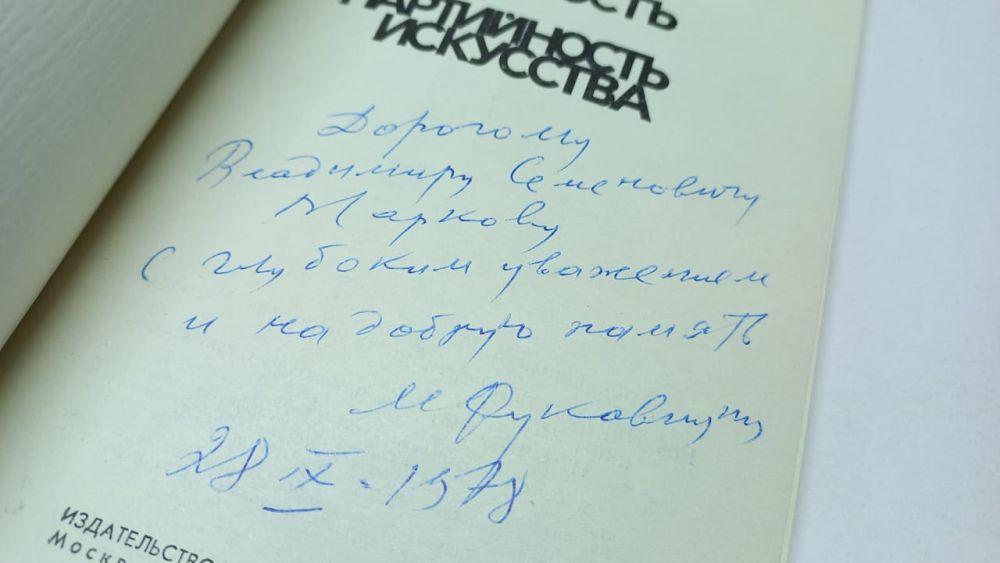 ОСТЬ
ПАРТИЙНОСТЬ
ИСКУССТВА
Дорогому
Владимиру Семеновичу
Маркову
с глубоким уважением
и на добрую память
М
28 IX. 1978
ИЗДАТЕЛЬСТВО
Москв